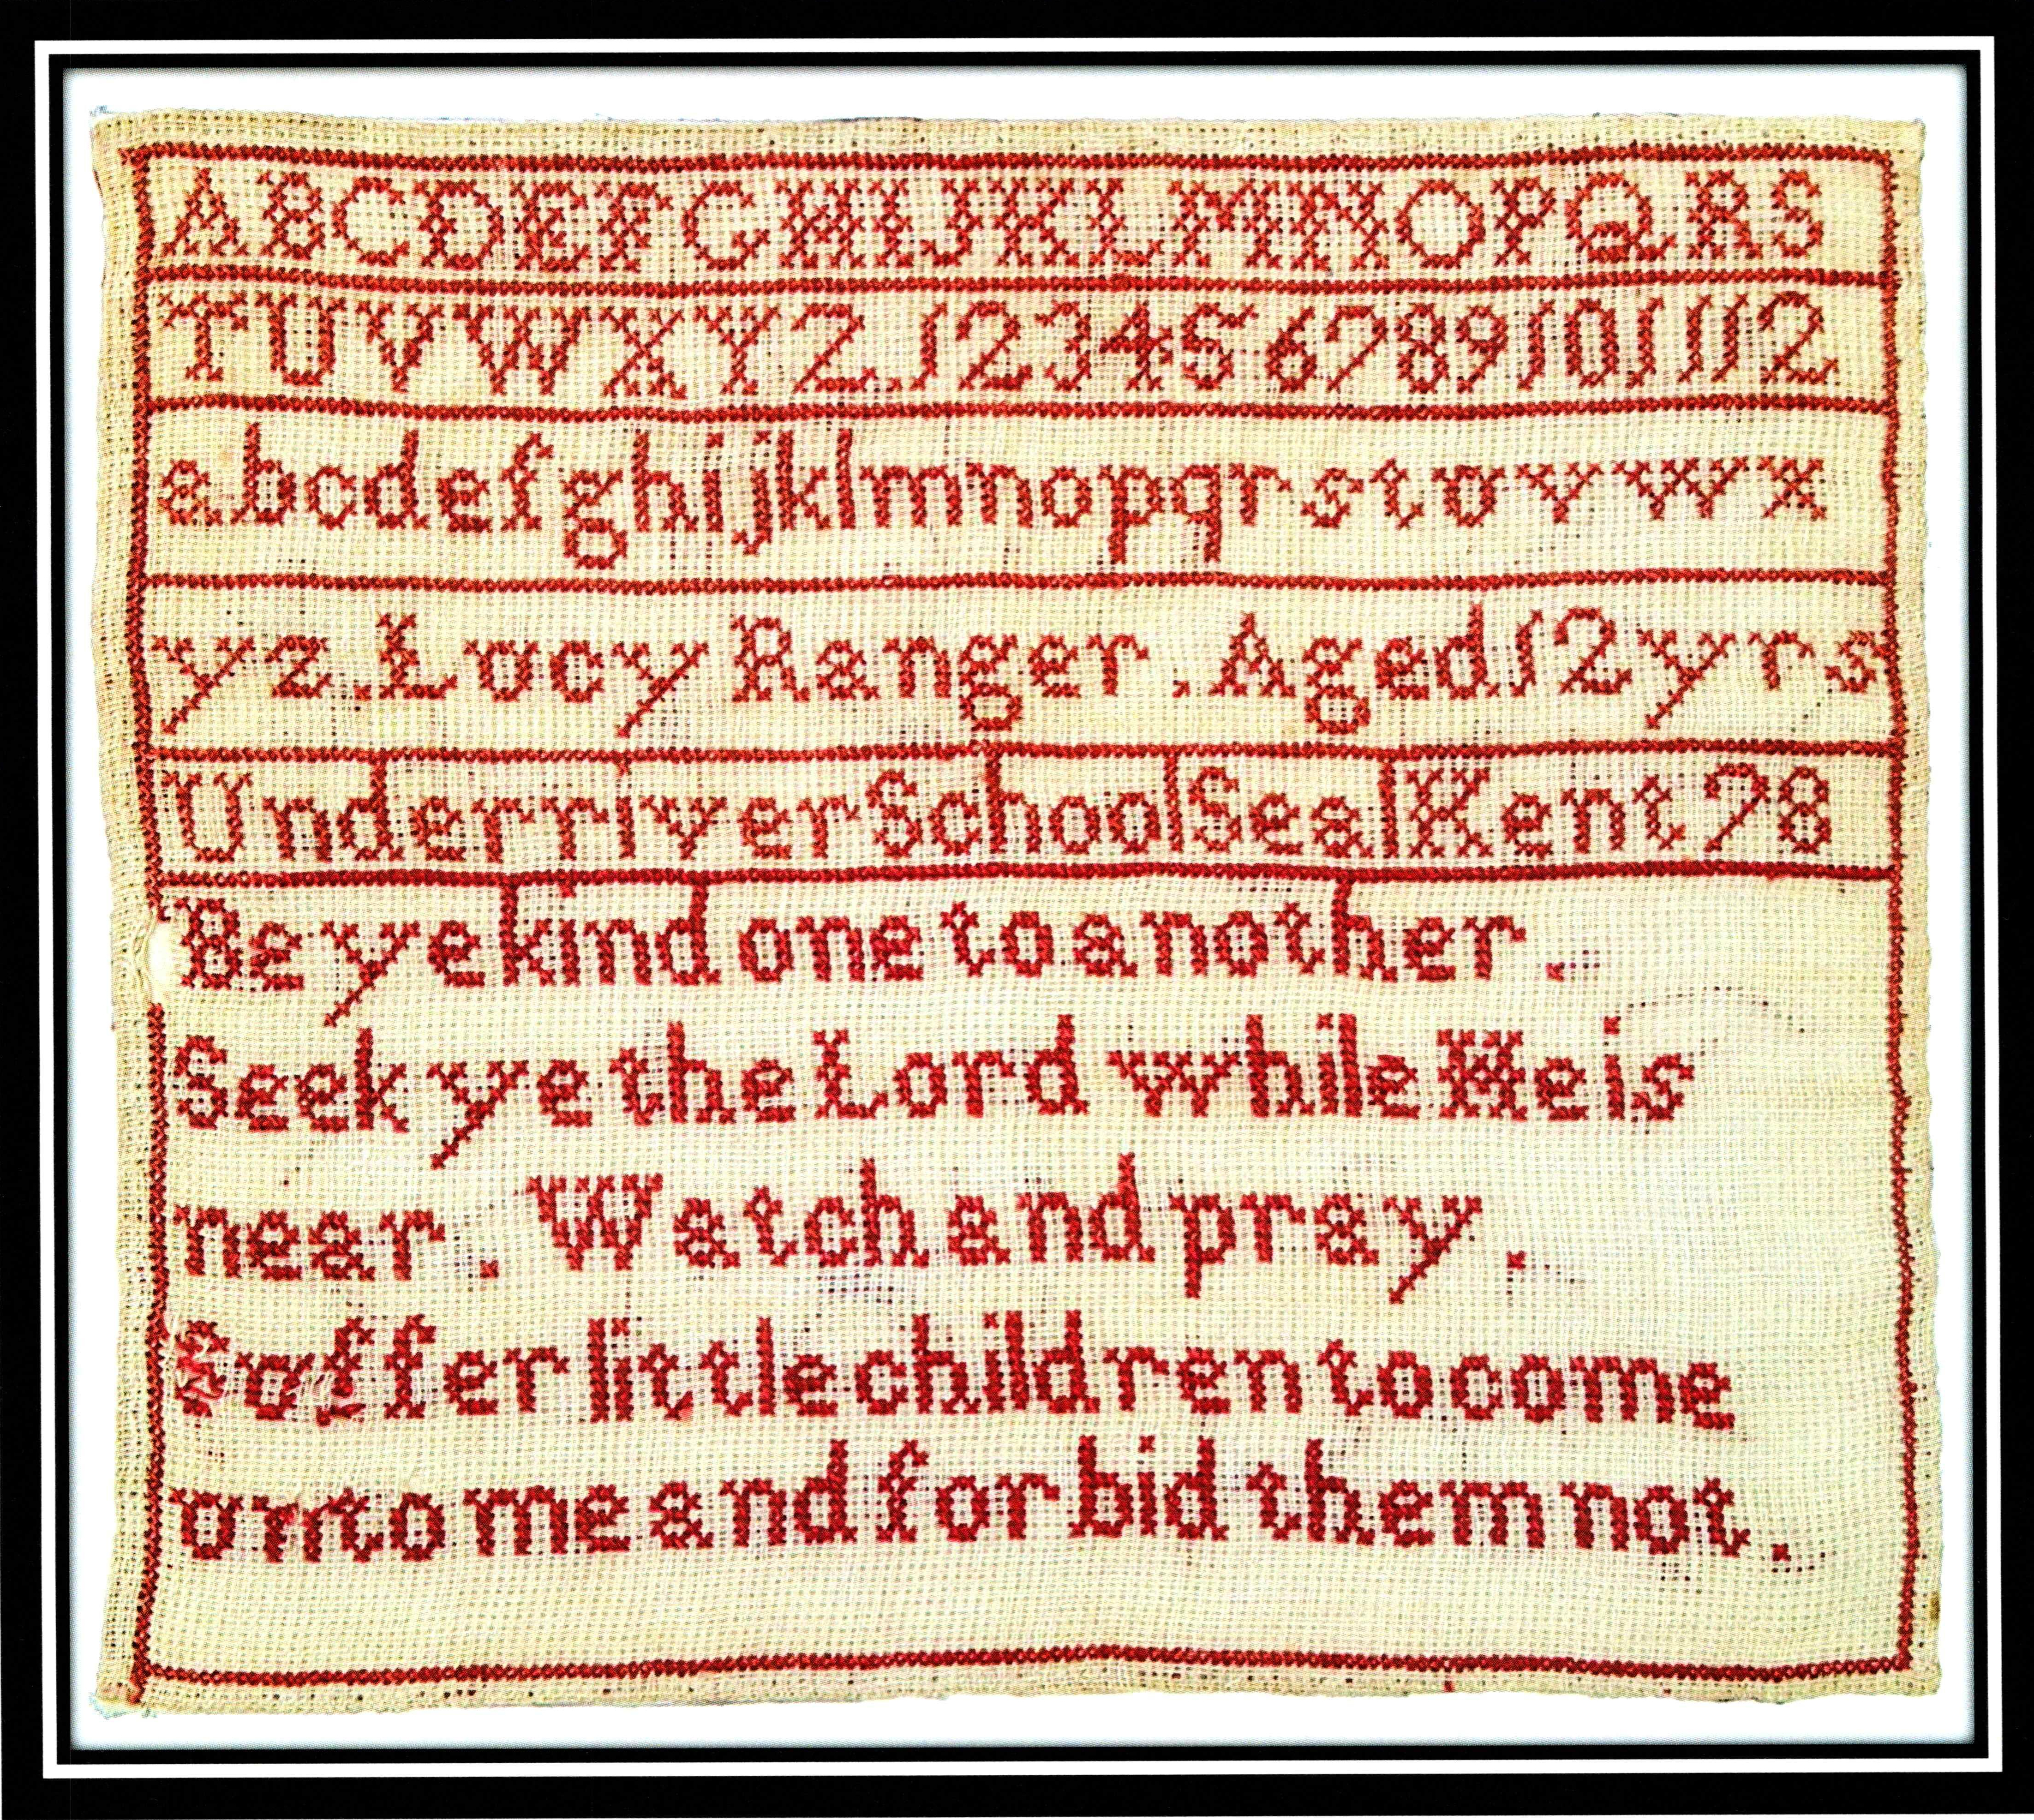 ABCDEFGHIJKLMNOPQRS
TUVWXYZ.123456789101112
abcdefghijklmnopqrstuvwx
yz.Lucy Ranger.Aged 12 yrs
Underriver School Seal Kent 78
Be ye kind one to another.
Seek ye the Lord while He is
near. Watch and pray.
Suffer little children to come
unto me and forbid them not.